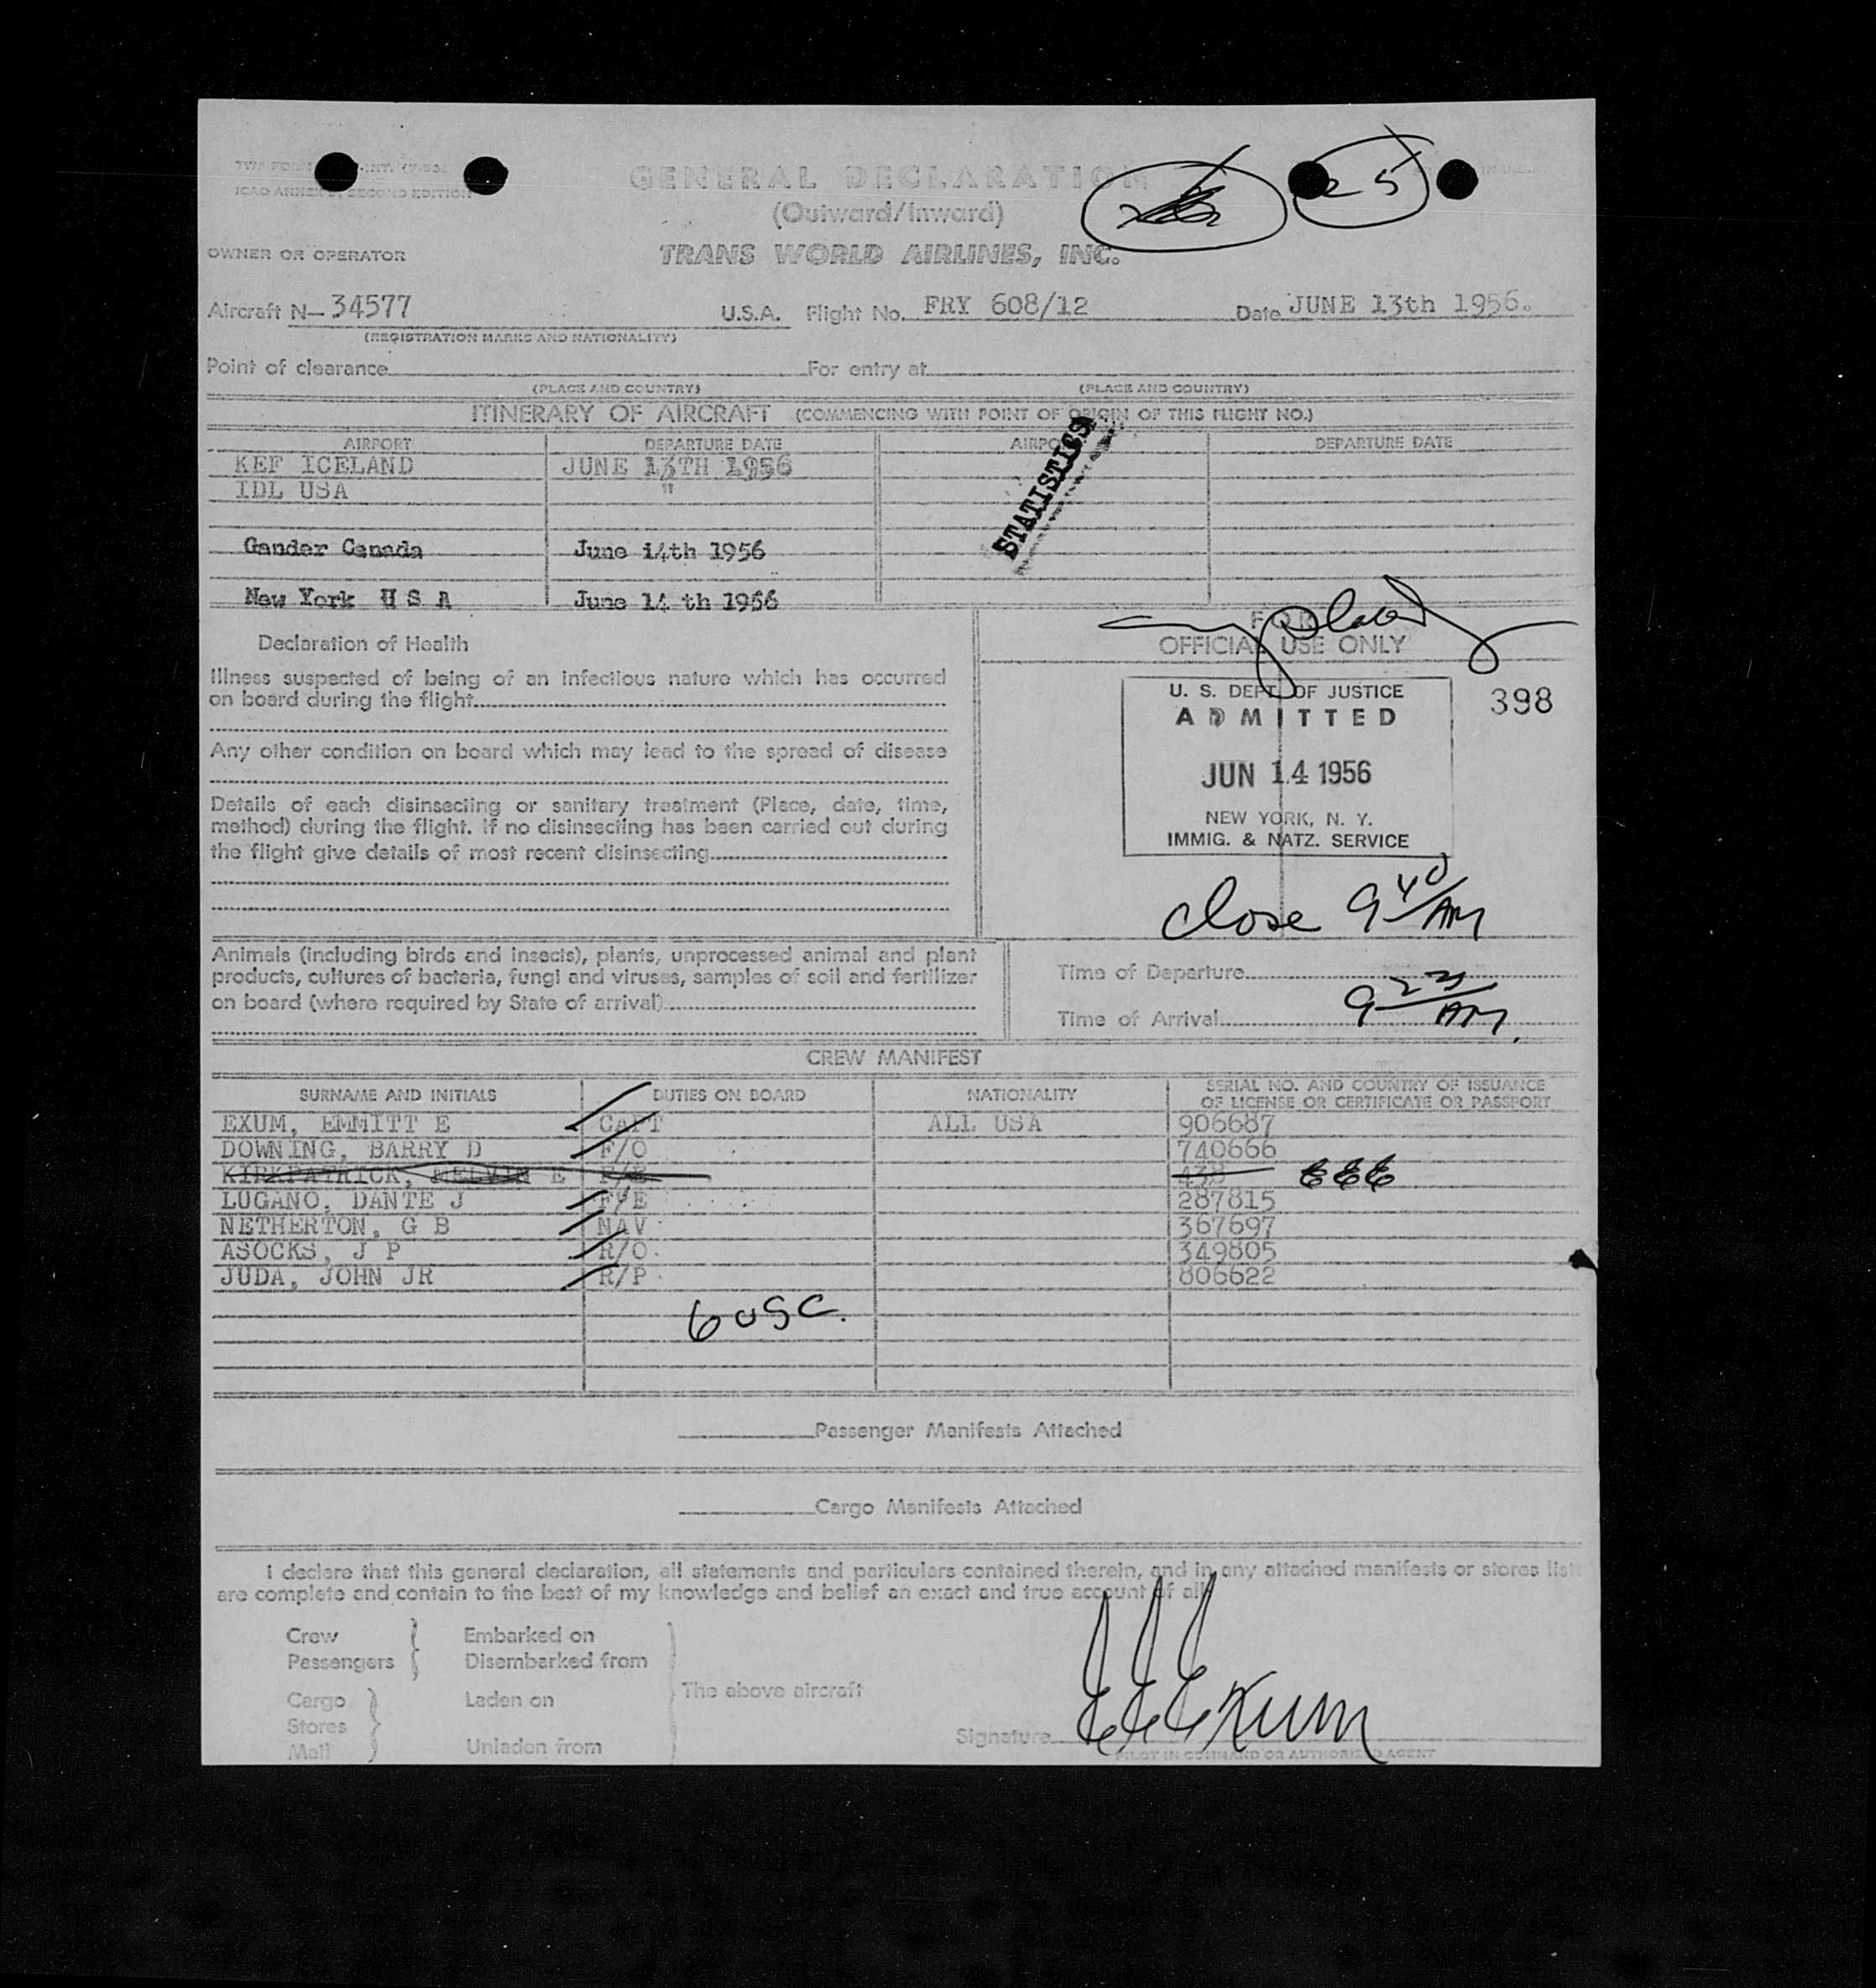 GENERAL DECLARATION
25
ICAO ANNEX 9, SECOND EDITION
(Outward/Inward)
OWNER OR OPERATOR TRANS WORLD AIRLINES, INC.
Aircraft N— 34577 U.S.A. Flight No. FRY 608/12 Date JUNE 13th 1956.
(REGISTRATION MARKS AND NATIONALITY)
Point of clearance For entry at
(PLACE AND COUNTRY) (PLACE AND COUNTRY)
ITINERARY OF AIRCRAFT (COMMENCING WITH POINT OF ORIGIN OF THIS FLIGHT NO.)
AIRPORT DEPARTURE DATE AIRPORT DEPARTURE DATE
KEF ICELAND JUNE 13TH 1956
IDL USA "
STATISTICS
Gander Canada June 14th 1956
New York U S A June 14 th 1956
Declaration of Health
FOR
OFFICIAL USE ONLY
Illness suspected of being of an infectious nature which has occurred
on board during the flight
Any other condition on board which may lead to the spread of disease
Details of each disinsecting or sanitary treatment (Place, date, time,
method) during the flight. If no disinsecting has been carried out during
the flight give details of most recent disinsecting
U. S. DEPT. OF JUSTICE
ADMITTED
398
JUN 14 1956
NEW YORK, N. Y.
IMMIG. & NATZ. SERVICE
close 9 40/AM
Animals (including birds and insects), plants, unprocessed animal and plant
products, cultures of bacteria, fungi and viruses, samples of soil and fertilizer
on board (where required by State of arrival)
Time of Departure
Time of Arrival 9 23 AM
CREW MANIFEST
SURNAME AND INITIALS DUTIES ON BOARD NATIONALITY SERIAL NO. AND COUNTRY OF ISSUANCE
OF LICENSE OR CERTIFICATE OR PASSPORT
EXUM, EMMITT E CAPT ALL USA 906687
DOWNING, BARRY D F/O 740666
KIRKPATRICK, MELVIN E F/E 438 EEE
LUGANO, DANTE J F/E 287815
NETHERTON, G B NAV 367697
ASOCKS, J P R/O 349805
JUDA, JOHN JR R/P 806622
6 USC.
Passenger Manifests Attached
Cargo Manifests Attached
I declare that this general declaration, all statements and particulars contained therein, and in any attached manifests or stores lists
are complete and contain to the best of my knowledge and belief an exact and true account of all
Crew Embarked on
Passengers Disembarked from
Cargo Laden on The above aircraft
Stores
Mail Unladen from
Signature EEExum
PILOT IN COMMAND OR AUTHORIZED AGENT